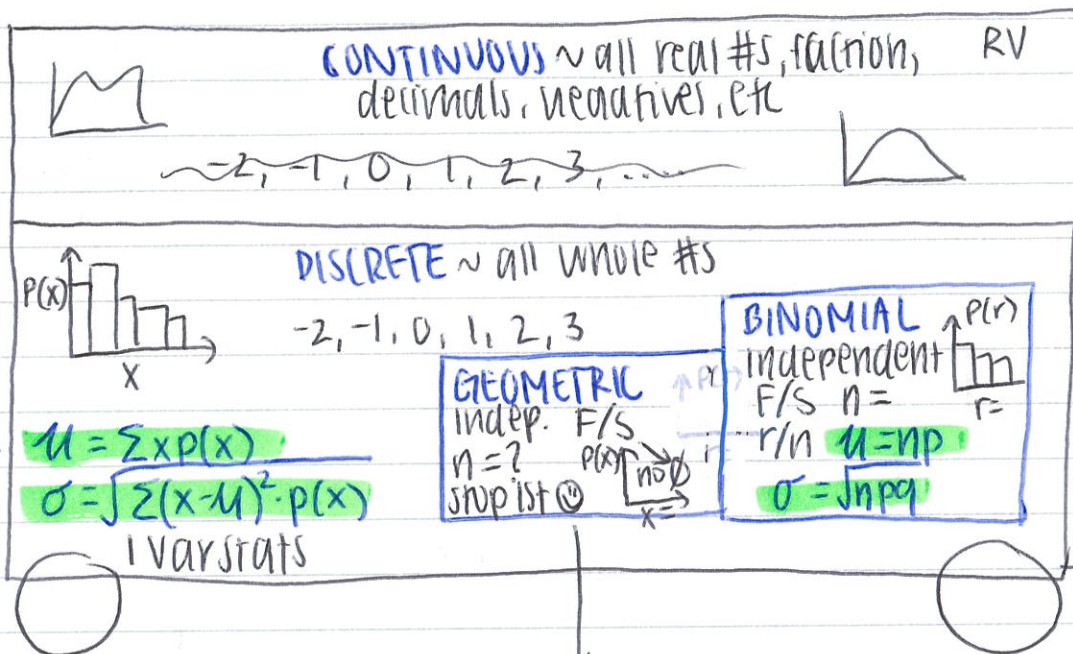 CONTINUOUS ~ all real #s, faction,
RV
decimals, negatives, etc
-2, -1, 0, 1, 2, 3, .....
DISCRETE ~ all whole #s
P(x)
x
-2, -1, 0, 1, 2, 3
μ = Σxp(x)
σ = √Σ(x-μ)²·p(x)
1 varstats
GEOMETRIC
indep. F/S
n = ?
stop 1st ☺
p(x)
no ∅
x=
BINOMIAL
P(r)
independent
F/S n =
r=
r/n μ=np
σ = √npq